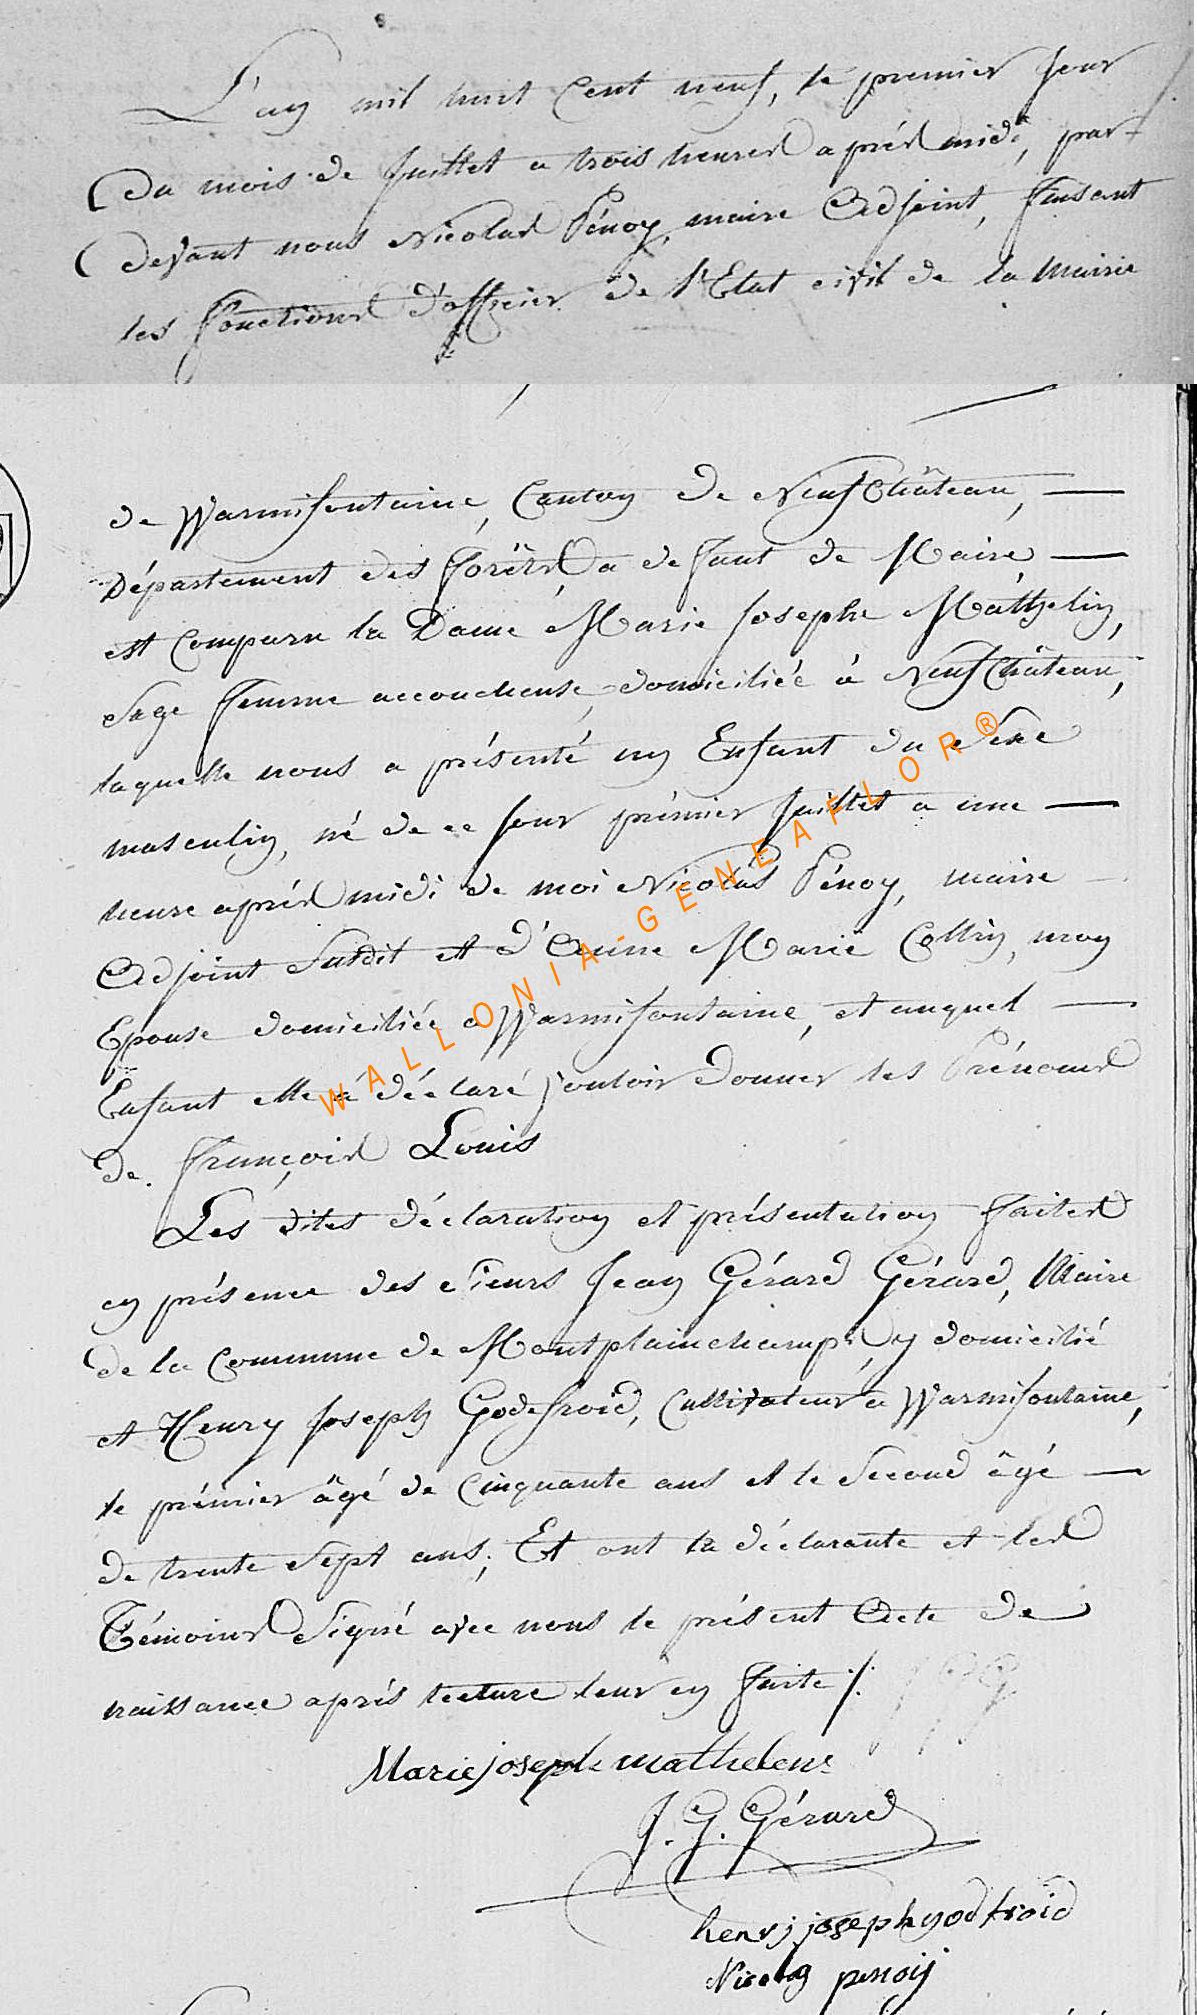 L'an mil huit Cent neuf, le premier jour
du mois de Juillet a trois heures après midi, par-
devant nous Nicolas Pénoy, maire Adjoint, faisant
les fonctions d'officier de l'Etat civil de la Mairie
de Warmifontaine, Canton de Neufchâteau,
Département des forêts, a defaut de Maire
est comparu la Dame Marie Josephe Mathelin,
Sage femme accoucheuse, domiciliée à Neufchâteau,
laquelle nous a présenté un Enfant du Sexe
masculin, né de ce jour prémier Juillet a une
heure après midi de moi Nicolas Pénoy, maire
Adjoint Susdit et d'Anne Marie Collin, mon
Epouse domiciliée a Warmifontaine, et auquel
Enfant elle a déclaré vouloir donner les Prénoms
de François Louis
Les dites déclaration et présentation faites
en présence des Sieurs Jean Gérard Gérard, Maire
de la Commune de Montplainchamps, y domicilié
et Henry Joseph Godefroid, Cultivateur a Warmifontaine,
le prémier âgé de Cinquante ans et le Second âgé
de trente Sept ans; Et ont la déclarante et les
Témoins Signé avec nous le présent Acte de
naissance après lecture leur en faite ./.
Marie joseph mathelin
J. G. Gérard
henrij joseph godfroid
Nicolas penoij
WALLONIA-GENEAFLOR®